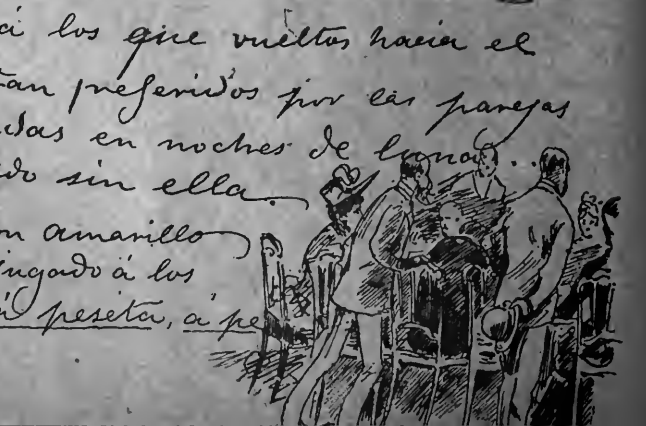 á los que vueltos hacia el
tan preferidos por las parejas
en noches de luna...
do sin ella.
on amarillo
jugado á los
á peseta, á pe